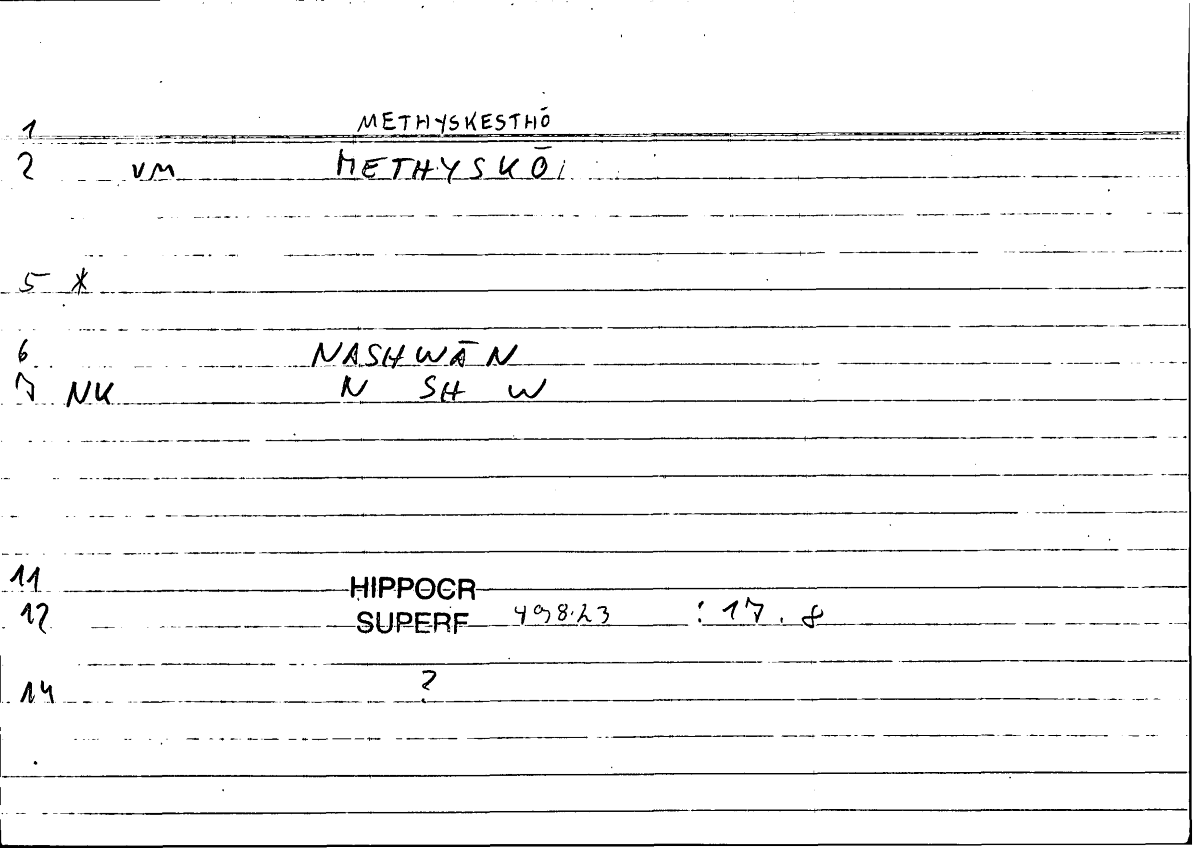 1 METHYSKESTHŌ
2 VM METHYSKŌ
5 *
6 NASHWĀN
7 NK N SH W
11 HIPPOCR
12 SUPERF 498.23 : 17.8
14 ?